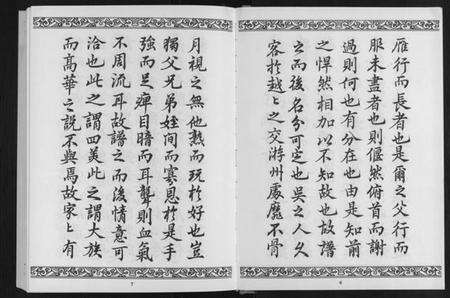 雁行而長者也是爾之父行而
服未盡者也則偃然俯首而謝
過則何也有分在也由是知前
之悍然相加以不知故也故譜
立而後名分可定也吳之人久
客於越越之交游州處靡不骨
月視之無他熟而玩於好也豈
獨父兄弟姪間而寡恩於是手
強而足痺目瞎而耳聾則血氣
不周流耳故譜之而後情意可
洽也此之謂四美此之謂大族
而高華之說不與焉故家之有